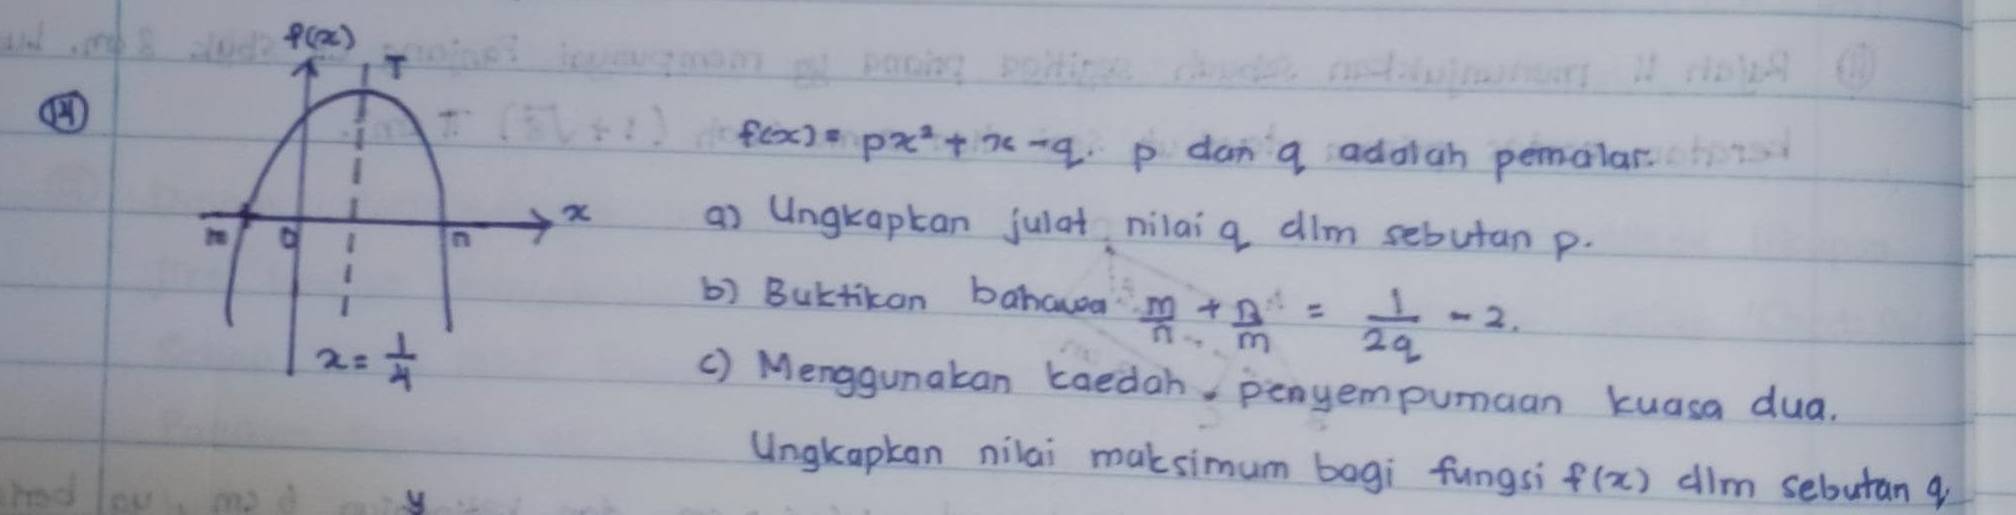 f(x)
T
⑭
f(x) = px² + x - q. p dan q adalah pemalar.
x
m
0
n
a) Ungkapkan julat nilai q dlm sebutan p.
b) Buktikan bahawa m/n + n/m = 1/2q - 2.
x = 1/4
c) Menggunakan kaedah penyempurnaan kuasa dua.
Ungkapkan nilai maksimum bagi fungsi f(x) dlm sebutan q
y